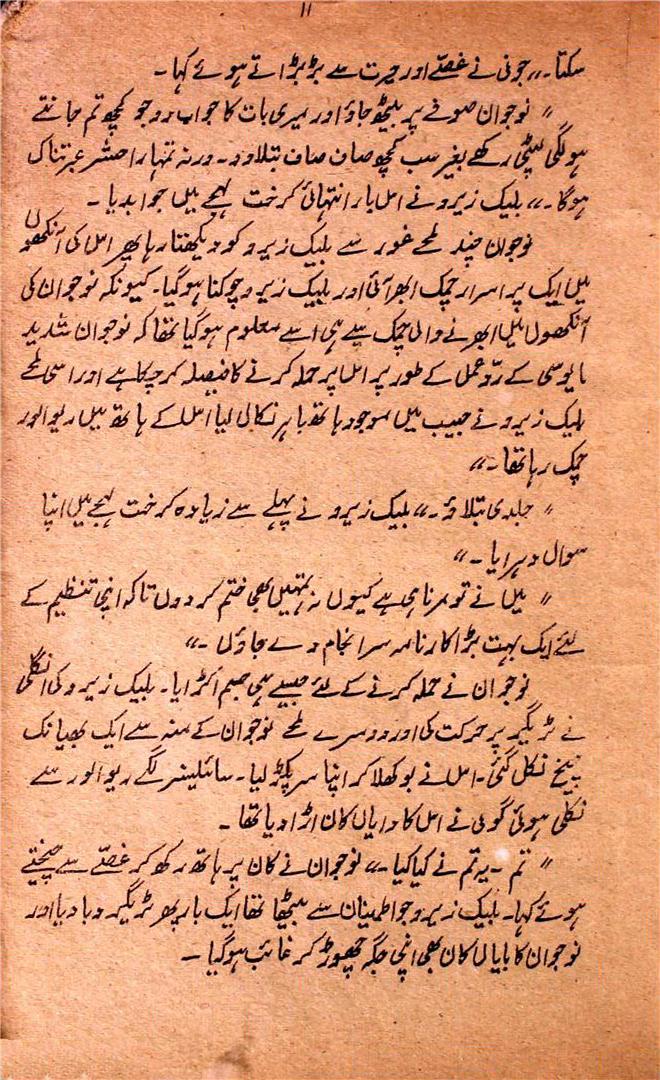 ۱۱
سکتا۔،، جونی نے غصّے اور حیرت سے بڑبڑاتے ہوئے کہا۔
،، نوجوان صوفے پر بیٹھ جاؤ اور میری بات کا جواب دو جو کچھ تم جانتے
ہو لگی لپٹی رکھے بغیر سب کچھ صاف صاف بتلا دو۔ ورنہ تمہارا حشر عبرتناک
ہوگا۔،، بلیک زیرو نے اس بار انتہائی کرخت لہجے میں جواب دیا۔
نوجوان چند لمحے غور سے بلیک زیرو کو دیکھتا رہا پھر اس کی آنکھوں
میں ایک پراسرار چمک ابھر آئی اور بلیک زیرو چوکنا ہوگیا۔ کیونکہ نوجوان کی
آنکھوں میں ابھرنے والی چمک سے ہی اسے معلوم ہوگیا تھا کہ نوجوان شدید
مایوسی کے ردّ عمل کے طور پر اس پر حملہ کرنے کا فیصلہ کر چکا ہے اور اسی لمحے
بلیک زیرو نے جیب میں موجود ہاتھ باہر نکال لیا اس کے ہاتھ میں ریوالور
چمک رہا تھا۔،،
،، جلدی بتلاؤ۔،، بلیک زیرو نے پہلے سے زیادہ کرخت لہجے میں اپنا
سوال دہرایا۔،،
،، میں نے تو مرنا ہی ہے کیوں نہ تمہیں بھی ختم کر دوں تاکہ اپنی تنظیم کے
لئے ایک بہت بڑا کارنامہ سرانجام دے جاؤں۔،،
نوجوان نے حملہ کرنے کے لئے جیسے ہی جسم اکڑایا۔ بلیک زیرو کی انگلی
نے ٹریگر پر حرکت کی اور دوسرے لمحے نوجوان کے منہ سے ایک بھیانک
چیخ نکل گئی۔ اس نے بوکھلا کر اپنا سر پکڑ لیا۔ سائلینسر لگے ریوالور سے
نکلی ہوئی گولی نے اس کا دایاں کان اڑا دیا تھا۔
،، تم ۔ یہ تم نے کیا کیا۔،، نوجوان نے کان پر ہاتھ رکھ کر غصّے سے چیختے
ہوئے کہا۔ بلیک زیرو جو اطمینان سے بیٹھا تھا ایک بار پھر ٹریگر دبا دیا اور
نوجوان کا بایاں کان بھی اپنی جگہ چھوڑ کر غائب ہوگیا۔